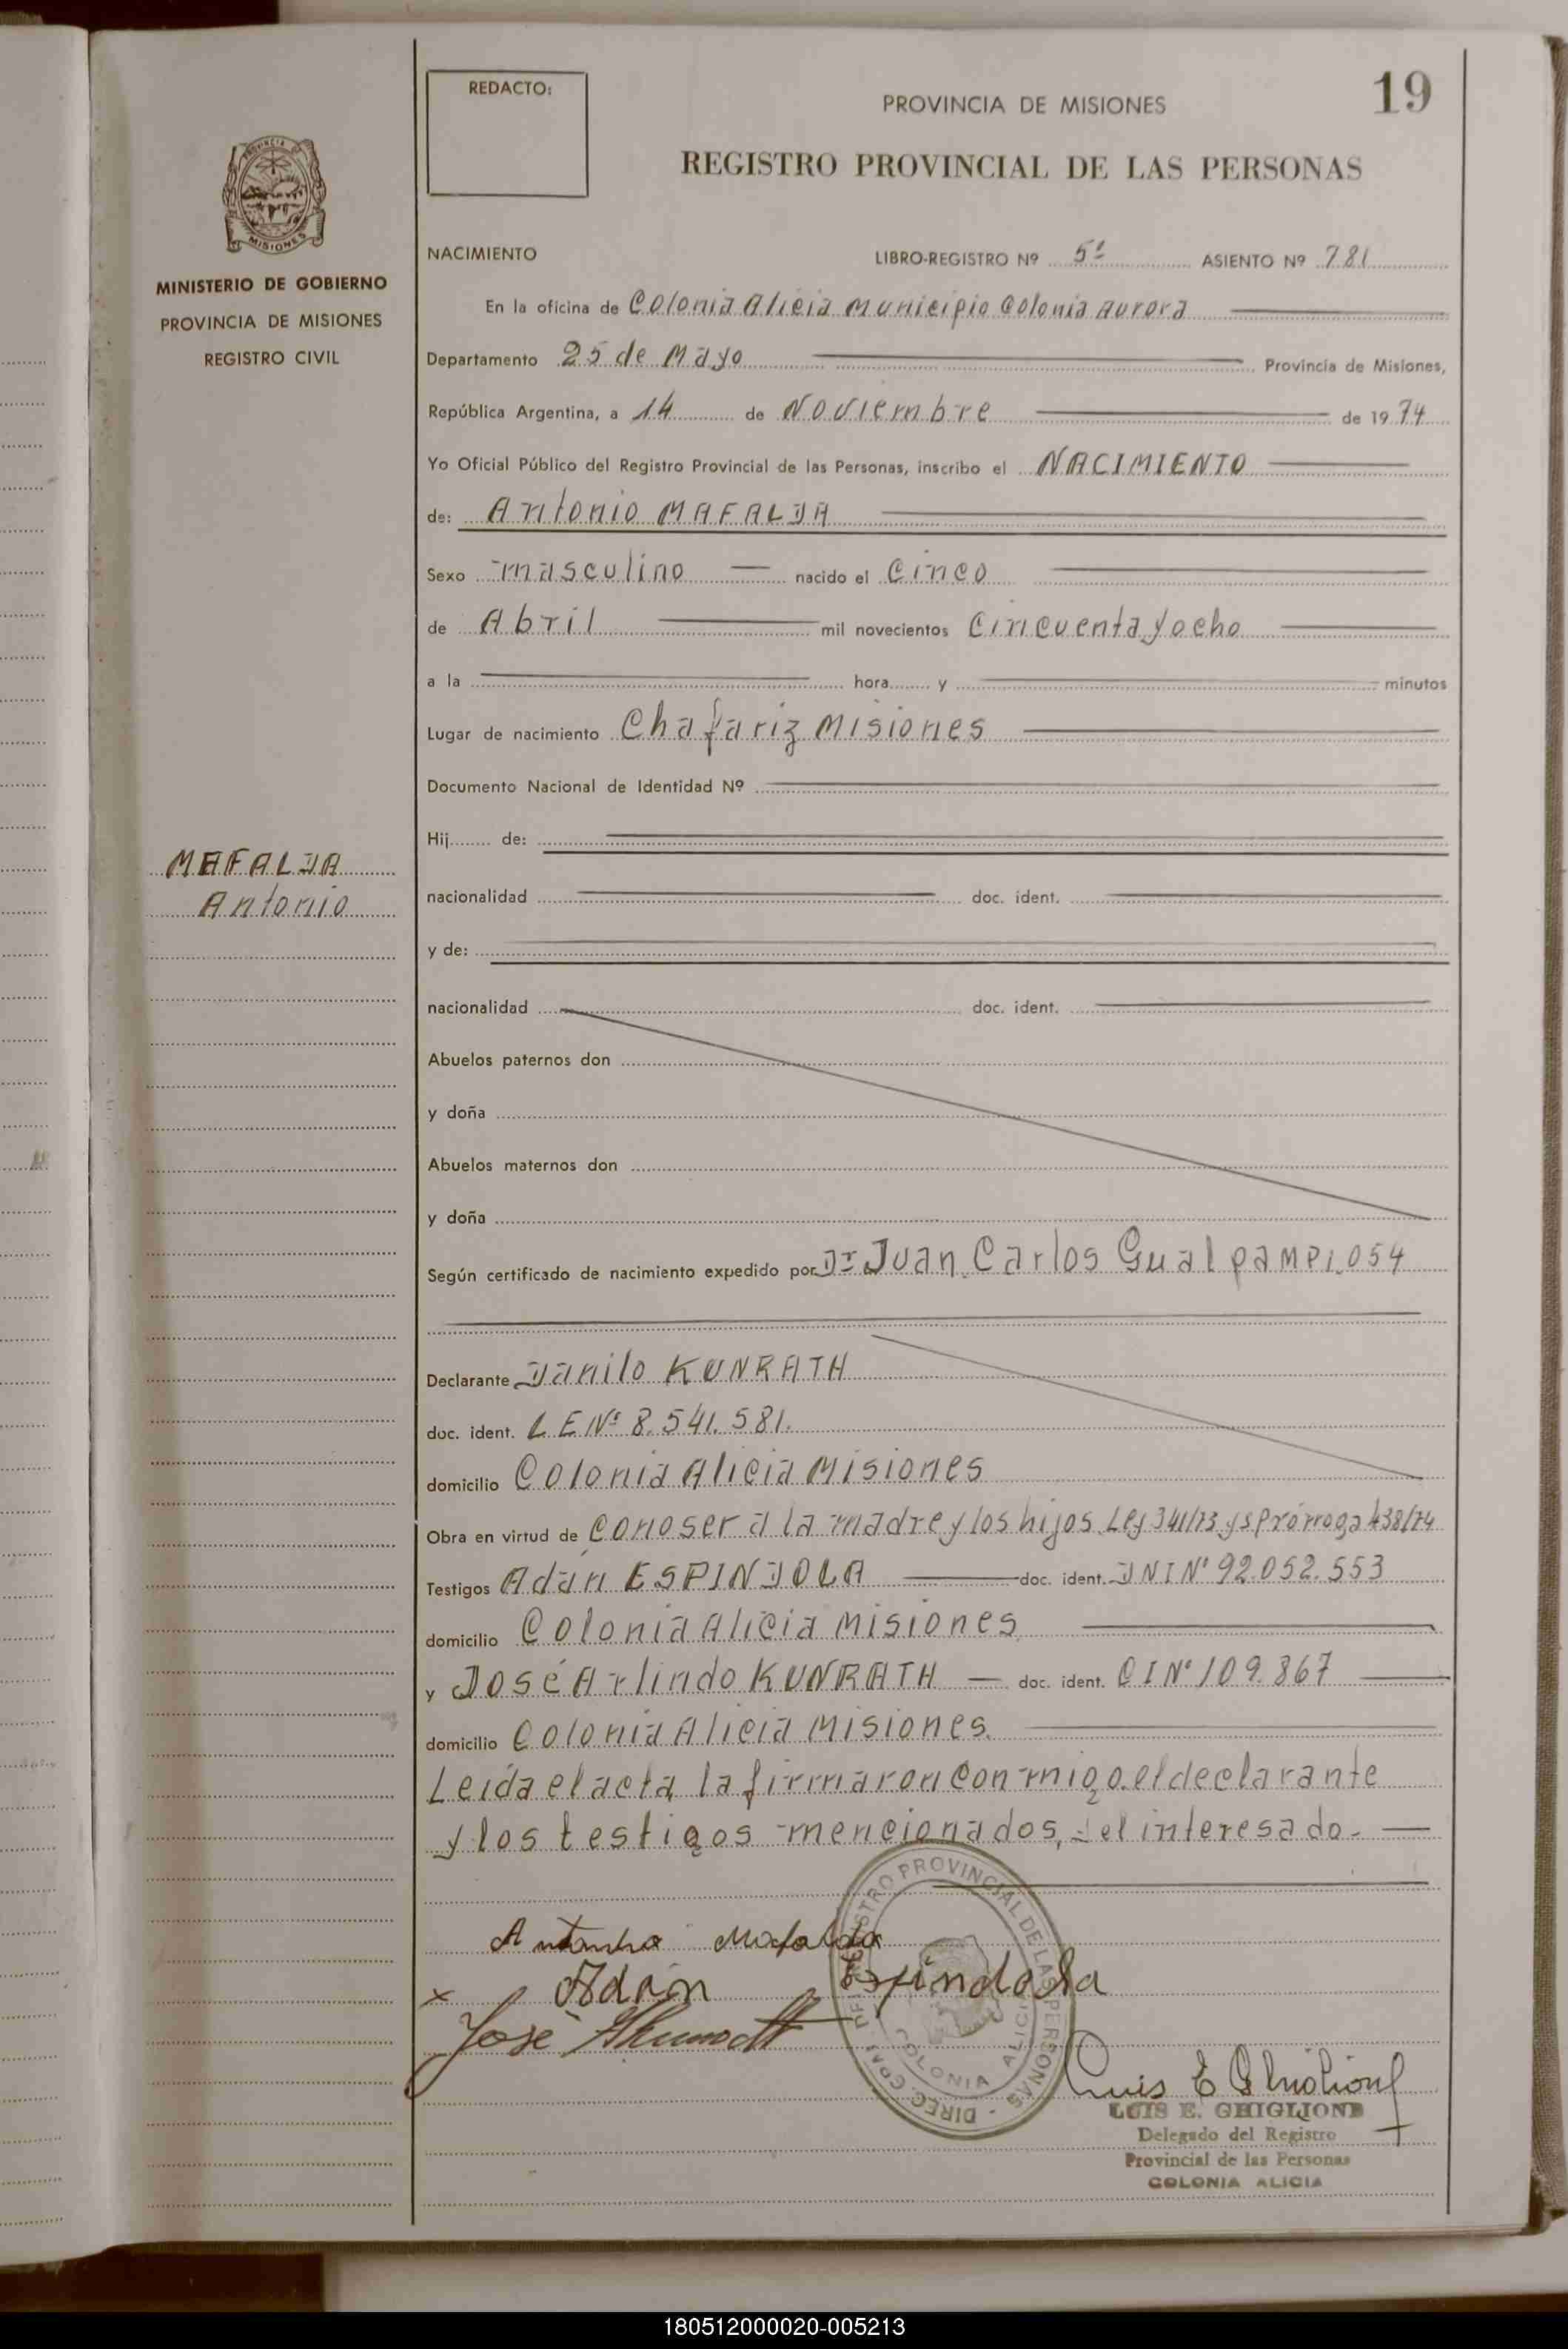 REDACTO:
PROVINCIA DE MISIONES
19
REGISTRO PROVINCIAL DE LAS PERSONAS
PROVINCIA DE
MISIONES
MINISTERIO DE GOBIERNO
PROVINCIA DE MISIONES
REGISTRO CIVIL
MAFALDA
Antonio
NACIMIENTO LIBRO-REGISTRO Nº 5º ASIENTO Nº 781
En la oficina de Colonia Alicia Municipio Colonia Aurora
Departamento 25 de Mayo Provincia de Misiones,
República Argentina, a 14 de Noviembre de 1974
Yo Oficial Público del Registro Provincial de las Personas, inscribo el NACIMIENTO
de: Antonio MAFALDA
Sexo masculino nacido el Cinco
de Abril mil novecientos Cincuenta y ocho
a la hora y minutos
Lugar de nacimiento Chafariz Misiones
Documento Nacional de Identidad Nº
Hij de:
nacionalidad doc. ident.
y de:
nacionalidad doc. ident.
Abuelos paternos don
y doña
Abuelos maternos don
y doña
Según certificado de nacimiento expedido por Dr Juan Carlos Gual pa MP1.054
Declarante Danilo KUNRATH
doc. ident. L E Nº 8.541.581.
domicilio Colonia Alicia Misiones
Obra en virtud de Conoser a la madre y los hijos Ley 341/73 y s Prórroga 438/74
Testigos Adán ESPINDOLA doc. ident. DNI Nº 92.052.553
domicilio Colonia Alicia Misiones
y José Arlindo KUNRATH doc. ident. CI Nº 109.867
domicilio Colonia Alicia Misiones.
Leída el acta, la firmaron conmigo. el declarante
y los testigos mencionados, el interesado.
Antonho Mafalda
x Adán Espindola
José
DIREC. GRAL. DEL REGISTRO PROVINCIAL DE LAS PERSONAS
COLONIA ALICIA
Luis E Ghiglione
LUIS E. GHIGLIONE
Delegado del Registro
Provincial de las Personas
COLONIA ALICIA
180512000020-005213